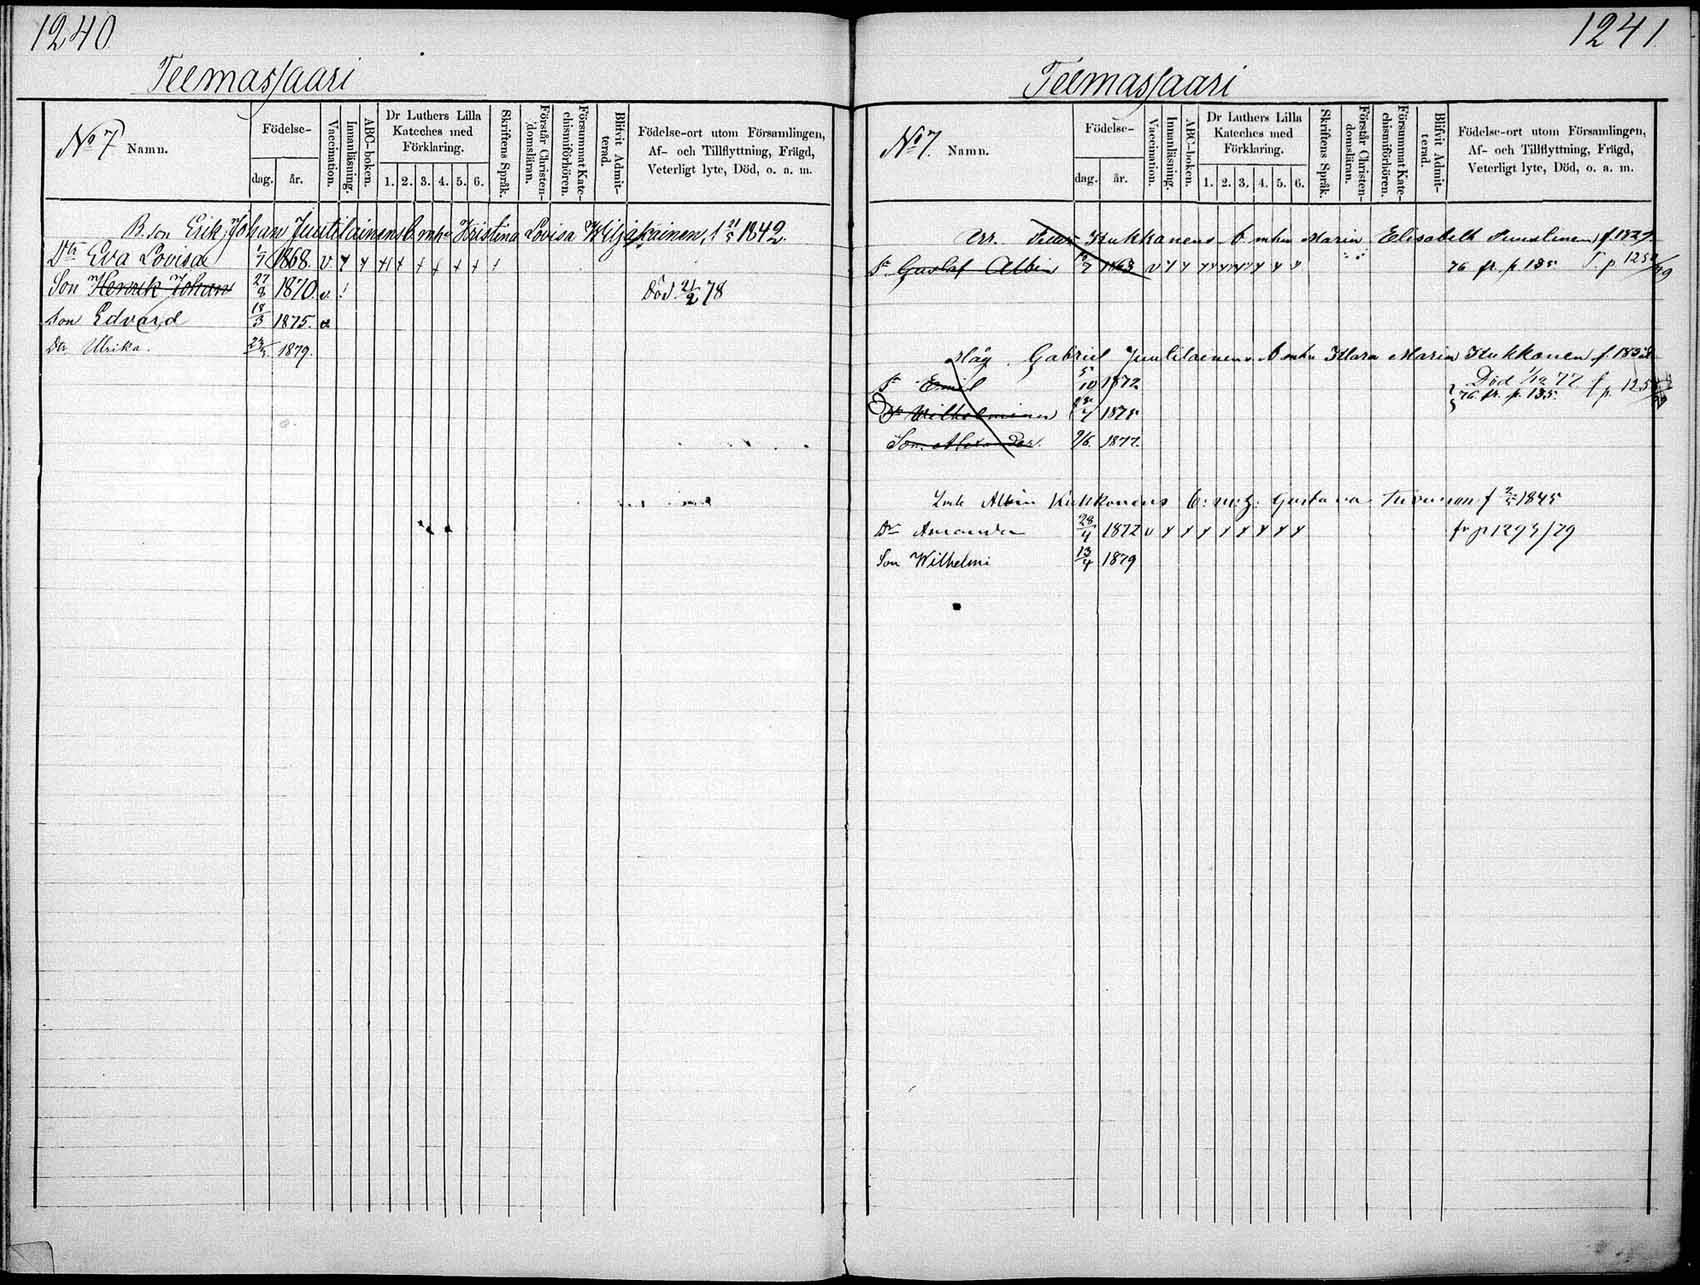 1240
Teemassaari
No 7. Namn.
Födelse-
dag. år.
Vaccination.
Innanläsning.
ABC-boken.
Dr Luthers Lilla Kateches med Förklaring.
1. 2. 3. 4. 5. 6.
Skriftens Språk.
Förstår Christendomsläran.
Försummat Katechismiförhören.
Blifvit Admitterad.
Födelse-ort utom Församlingen,
Af- och Tillflyttning, Frägd,
Veterligt lyte, Död, o. a. m.
B. son Erik Johan Juutilainens b. m. h. Kristina Lovisa Wiljakainen, f 21/5 1842.
Dr Eva Lovisa 1/7 1868. v
Son Henrik Johan 27/8 1870. v. Död 21/2 78
Son Edvard 18/3 1875.
Dr Ulrika. 1879.
1241
Teemassaari
No 7. Namn.
Födelse-
dag. år.
Vaccination.
Innanläsning.
ABC-boken.
Dr Luthers Lilla Kateches med Förklaring.
1. 2. 3. 4. 5. 6.
Skriftens Språk.
Förstår Christendomsläran.
Försummat Katechismiförhören.
Blifvit Admitterad.
Födelse-ort utom Församlingen,
Af- och Tillflyttning, Frägd,
Veterligt lyte, Död, o. a. m.
Arr. Petter Kukkonens b. m. h. Maria Elisabeth f 1827
S. Gustaf Albin 1863 v 76 fr. p. 135.
Måg Gabriel Juutilainens b. m. h. Klara Maria Kukkonen f. 1852
S. Emil 5/10 1872 Död 1/12 77
Dr Wilhelmina 1875 76 fr. p. 135.
Son Alexander. 9/6. 1877.
Inh. Albin Kukkonens b. m. h. Gustava Turunen f 1845
Dr Amanda 28/4 1872 v fr p 1294/79
Son Wilhelmi 13/4 1879